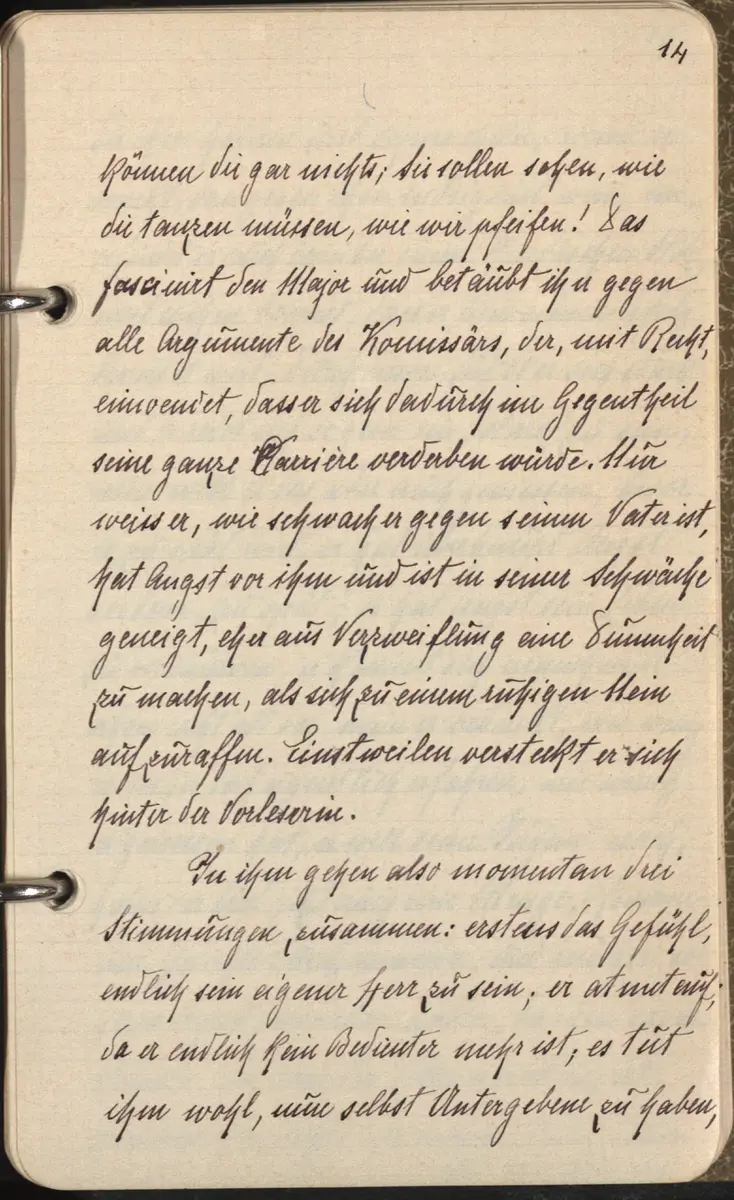 14
können die gar nichts; Sie sollen sehen, wie
die tanzen müssen, wie wir pfeifen! Das
fascinirt den Major und betäubt ihn gegen
alle Argumente des Komissärs, der, mit Recht,
einwendet, dass er sich dadurch im Gegentheil
seine ganze Karrière verderben würde. Nur
weiss er, wie schwach er gegen seinen Vater ist,
hat Angst vor ihm und ist in seiner Schwäche
geneigt, eher aus Verzweiflung eine Dummheit
zu machen, als sich zu einem ruhigen Nein
aufzuraffen. Einstweilen versteckt er sich
hinter der Vorleserin.
In ihm gehen also momentan drei
Stimmungen zusammen: erstens das Gefühl,
endlich sein eigener Herr zu sein; er atmet auf,
da er endlich kein Bedienter mehr ist; es tut
ihm wohl, nun selbst Untergebene zu haben,